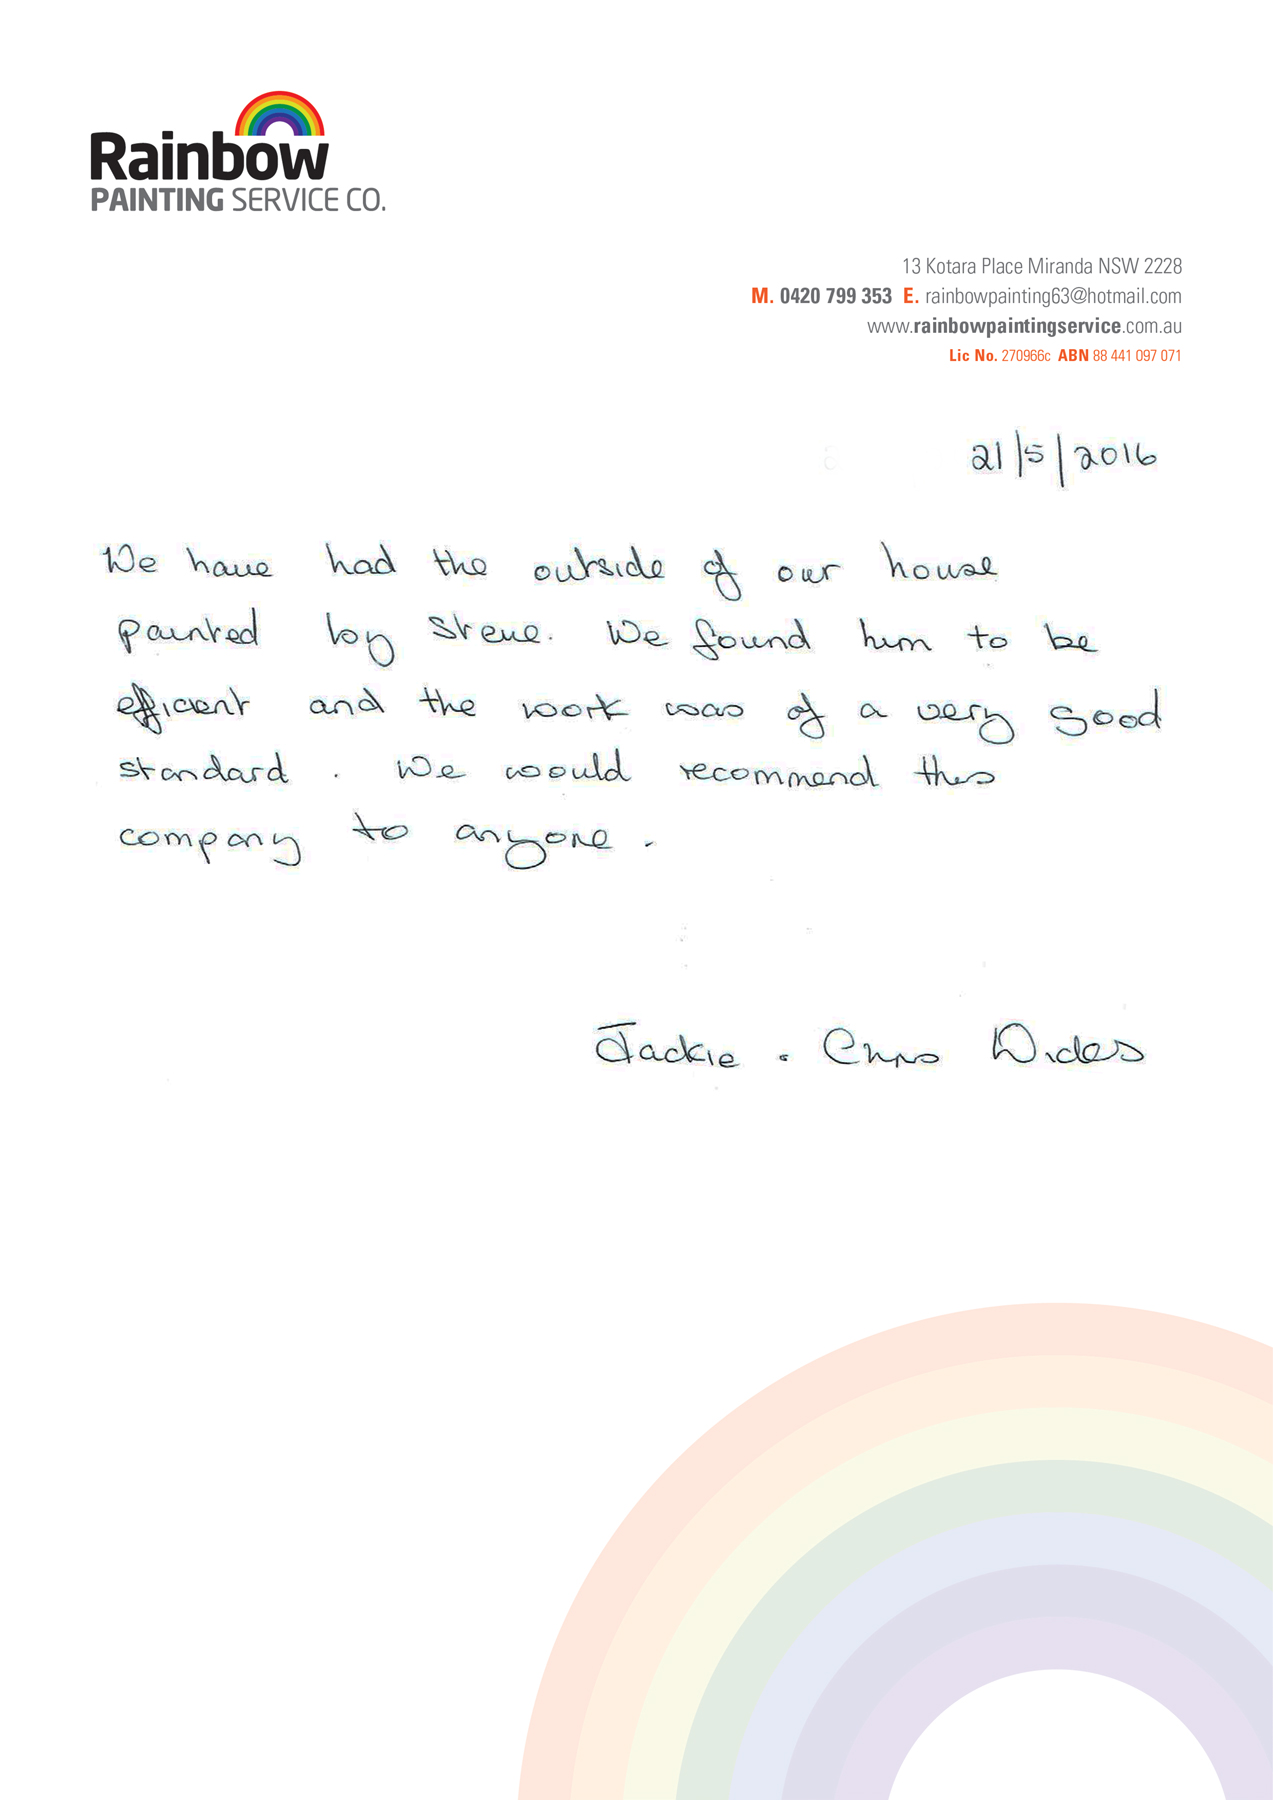 Rainbow
PAINTING SERVICE CO.
13 Kotara Place Miranda NSW 2228
M. 0420 799 353 E. rainbowpainting63@hotmail.com
www.rainbowpaintingservice.com.au
Lic No. 270966c ABN 88 441 097 071
21/5/2016
We have had the outside of our house
painted by Steve. We found him to be
efficient and the work was of a very good
standard. We would recommend this
company to anyone.
Jackie . Chris